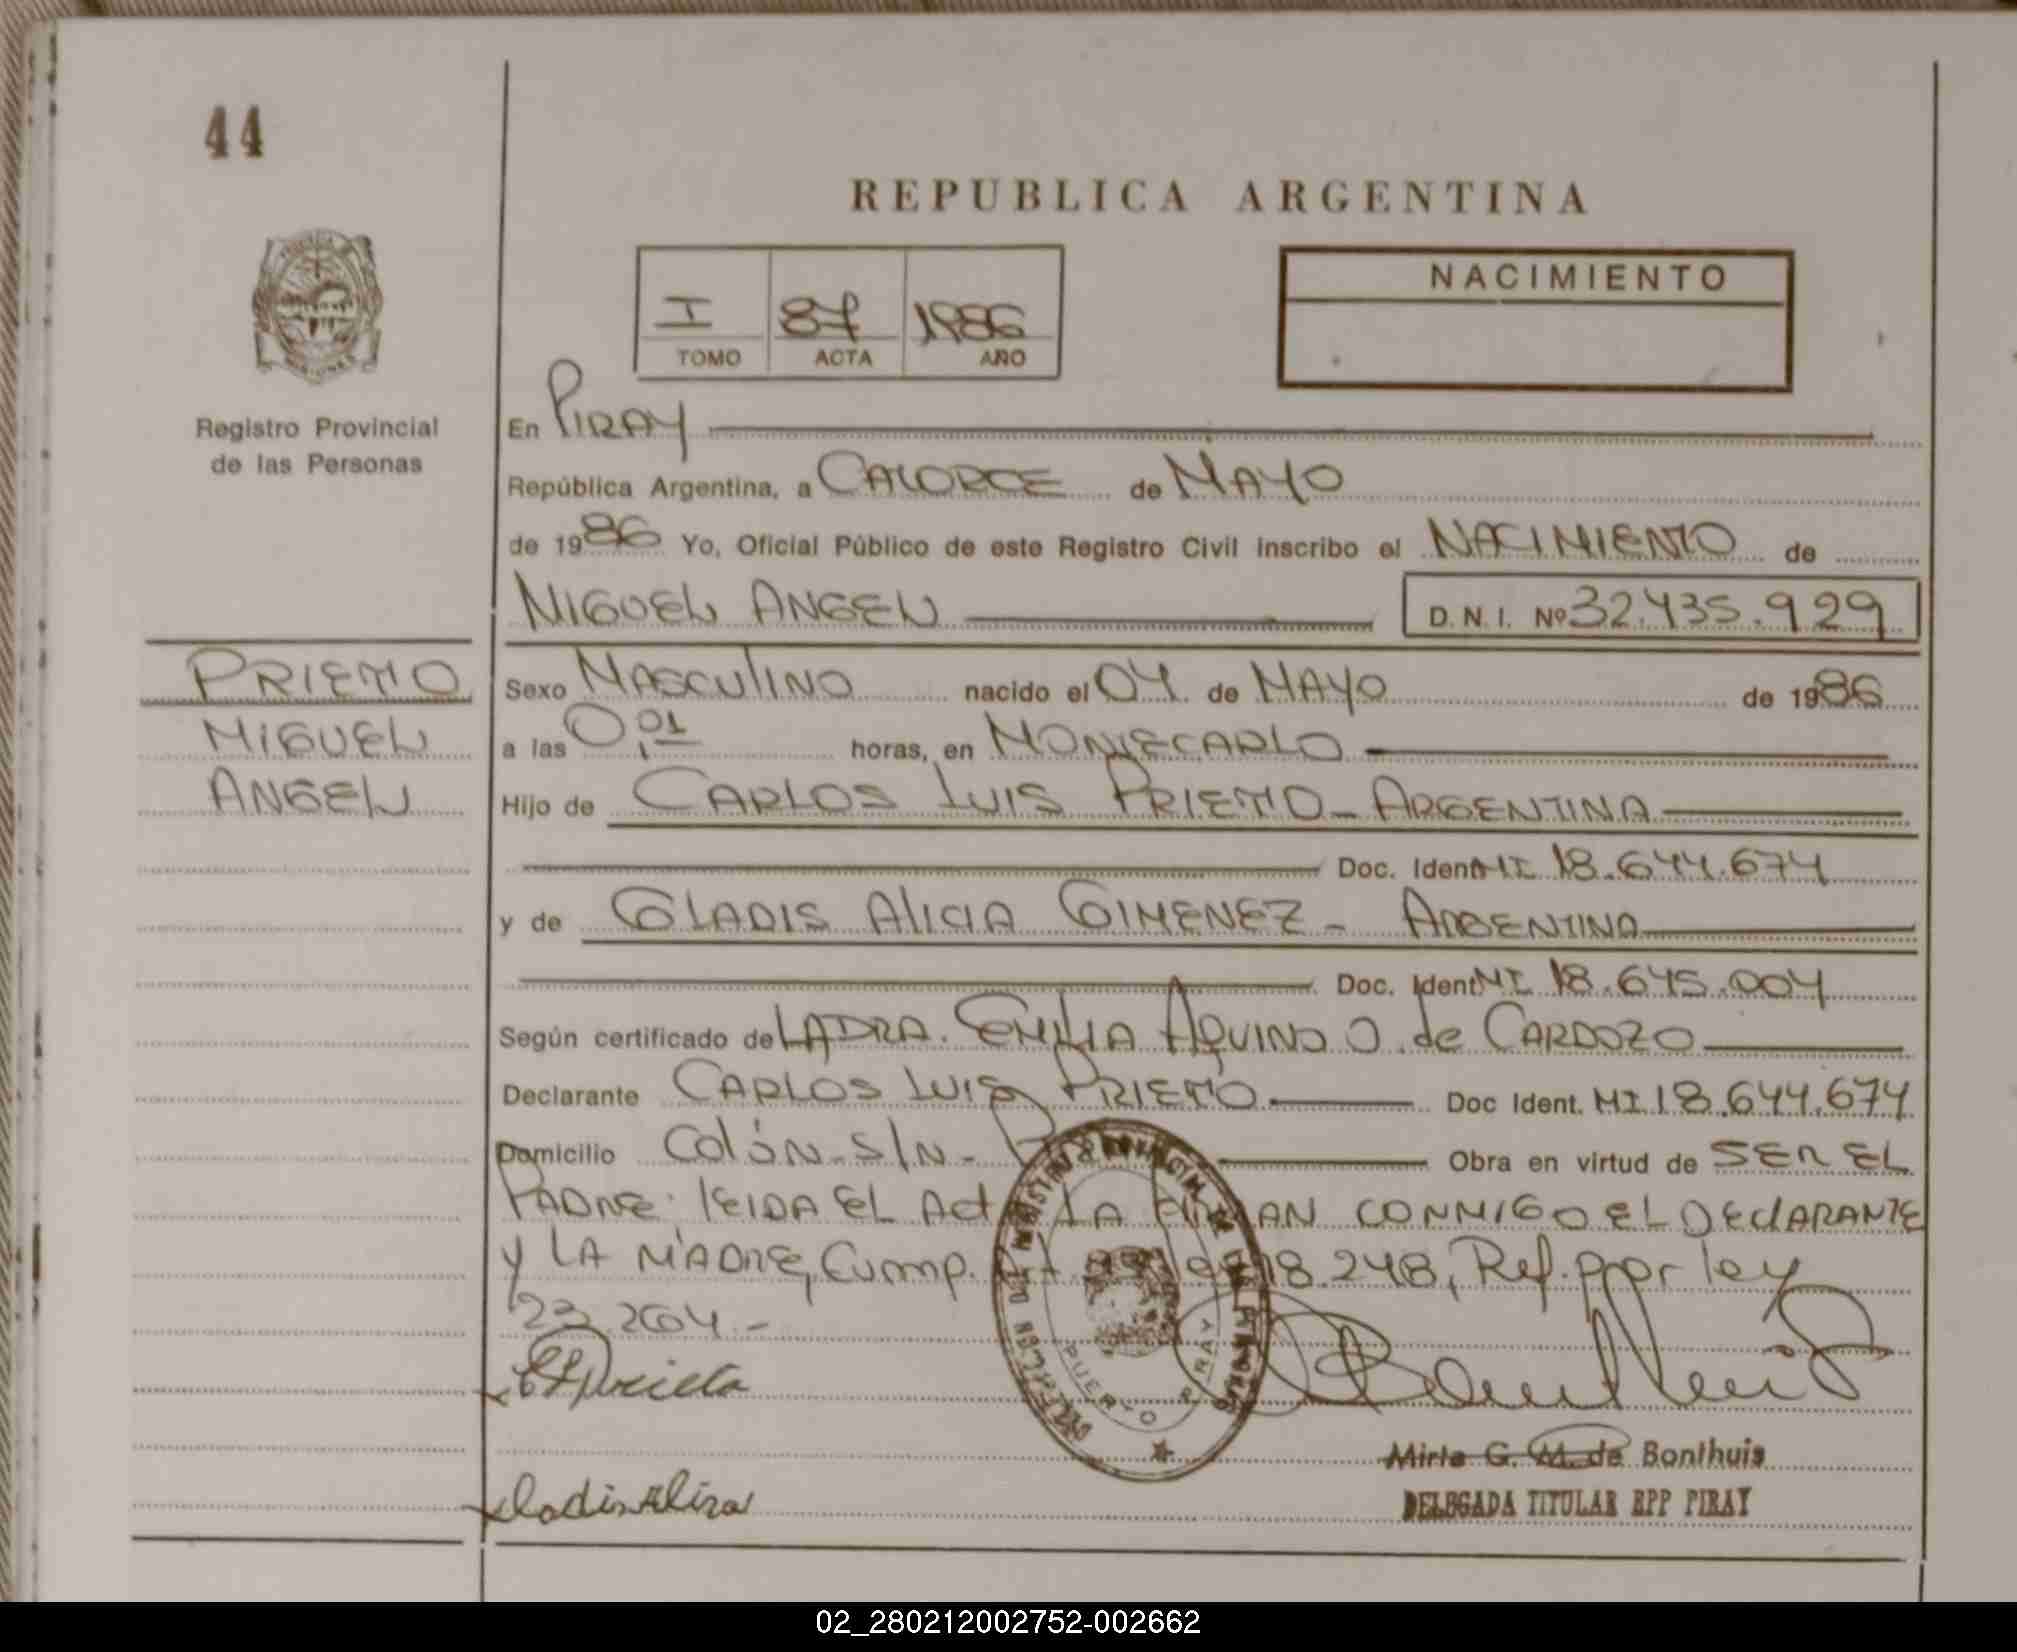 44
REPUBLICA ARGENTINA
NACIMIENTO
I 87 1986
TOMO ACTA AÑO
Registro Provincial
de las Personas
En PIRAY
República Argentina, a CATORCE de MAYO
de 1986 Yo, Oficial Público de este Registro Civil inscribo el NACIMIENTO de
MIGUEL ANGEL D.N.I. Nº 32.435.929
PRIETO
MIGUEL
ANGEL
Sexo MASCULINO nacido el 04 de MAYO de 1986
a las 0 01 horas, en MONTECARLO
Hijo de CARLOS LUIS PRIETO - ARGENTINA
Doc. Ident MI 18.644.674
y de GLADIS ALICIA GIMENEZ - ARGENTINA
Doc. Ident MI 18.645.004
Según certificado de LA DRA. EMILIA AQUINO O. de CARDOZO
Declarante CARLOS LUIS PRIETO Doc Ident. MI 18.644.674
Domicilio COLÓN - S/N - Obra en virtud de SER EL
PADRE. LEIDA EL ACTA LA FIRMAN CONMIGO EL DECLARANTE
Y LA MADRE, Cump. 18.248, Ref. por ley
23.264.-
Prieto
PUERTO PIRAY
Mirta G. M. de Bonthuis
DELEGADA TITULAR RPP PIRAY
02_280212002752-002662